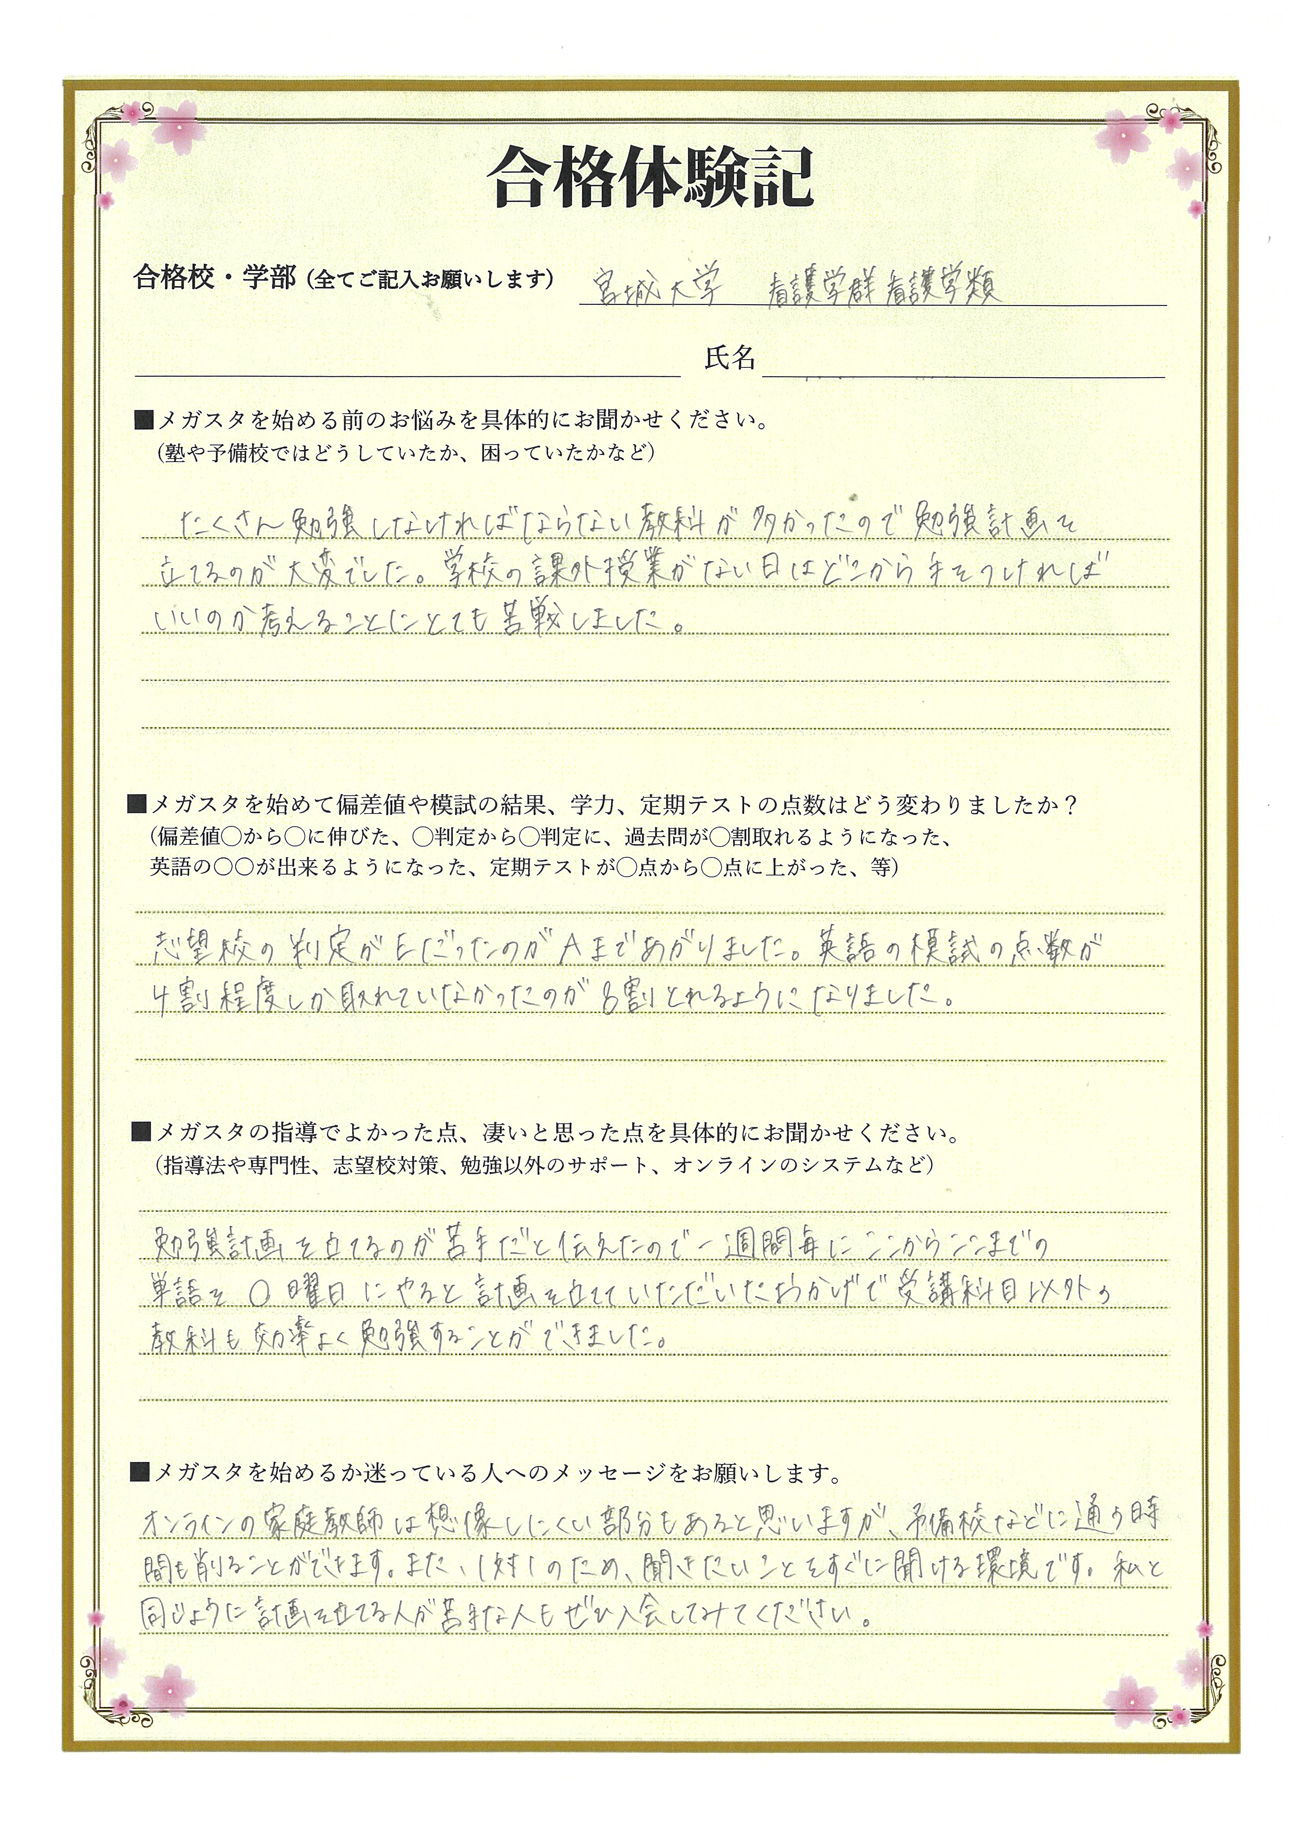 合格体験記
合格校・学部（全てご記入お願いします） 宮城大学 看護学群看護学類
氏名
■メガスタを始める前のお悩みを具体的にお聞かせください。
（塾や予備校ではどうしていたか、困っていたかなど）
たくさん勉強しなければならない教科が多かったので勉強計画を
立てるのが大変でした。学校の課外授業がない日はどこから手をつければ
いいのか考えることにとても苦戦しました。
■メガスタを始めて偏差値や模試の結果、学力、定期テストの点数はどう変わりましたか？
（偏差値〇から〇に伸びた、〇判定から〇判定に、過去問が〇割取れるようになった、
英語の〇〇が出来るようになった、定期テストが〇点から〇点に上がった、等）
志望校の判定がEだったのがAまであがりました。英語の模試の点数が
4割程度しか取れていなかったのが8割とれるようになりました。
■メガスタの指導でよかった点、凄いと思った点を具体的にお聞かせください。
（指導法や専門性、志望校対策、勉強以外のサポート、オンラインのシステムなど）
勉強計画を立てるのが苦手だと伝えたので一週間毎にここからここまでの
単語を〇曜日にやると計画を立てていただいたおかげで受講科目以外の
教科も効率よく勉強することができました。
■メガスタを始めるか迷っている人へのメッセージをお願いします。
オンラインの家庭教師は想像しにくい部分もあると思いますが、予備校などに通う時
間も削ることができます。また、1対1のため、聞きたいことをすぐに聞ける環境です。私と
同じように計画を立てる人が苦手な人もぜひ入会してみてください。